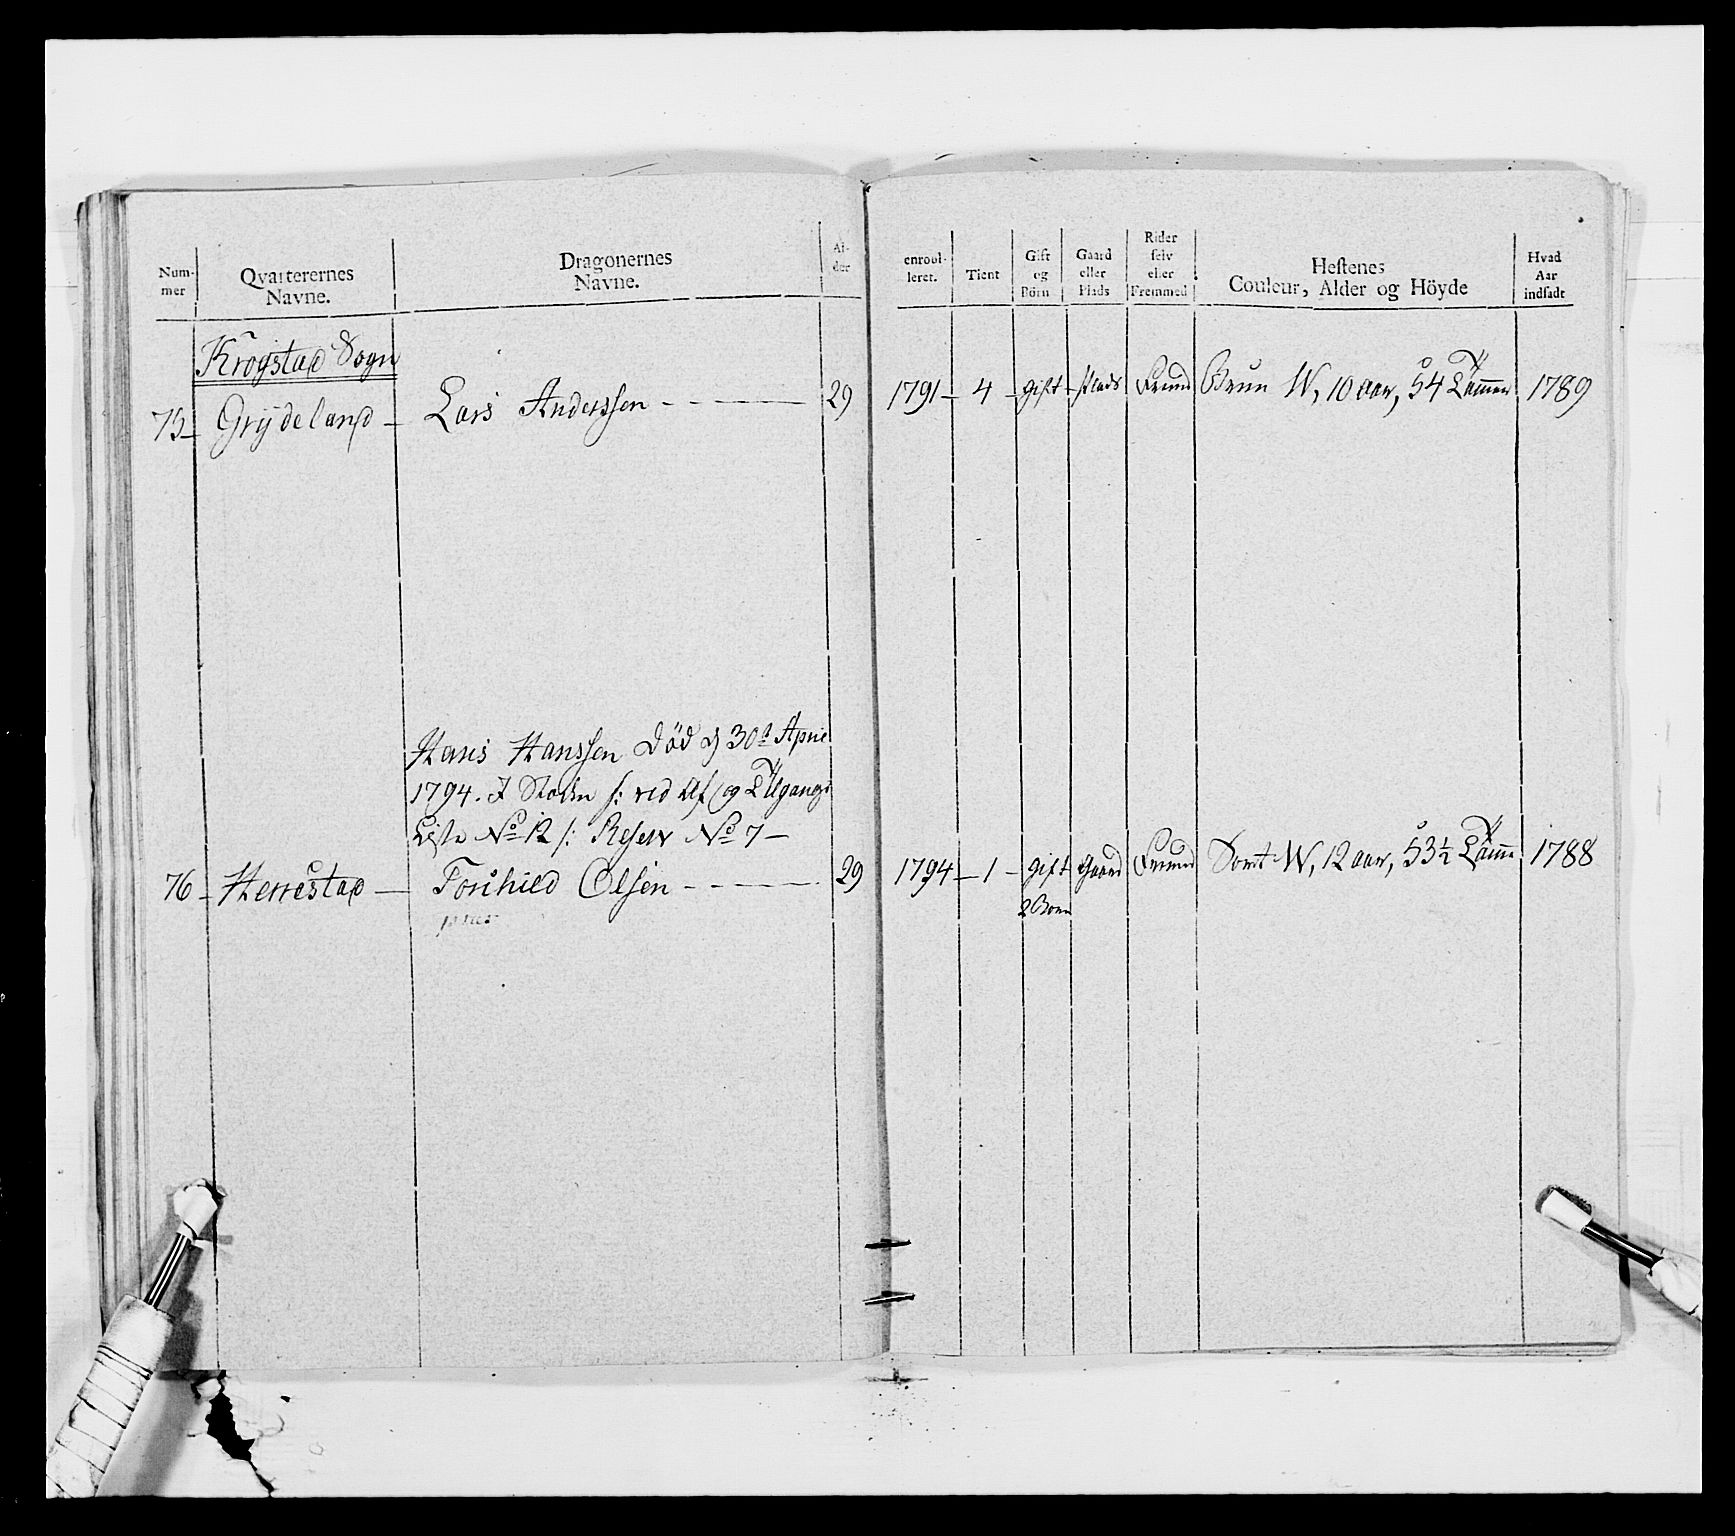 Num-
mer
Qvarterernes
Navne.
Dragonernes
Navne.
Al-
der
enroul-
leret.
Tient
Gift
og
Börn
Gaard
eller
Plads
Rider
selv
eller
Fremmed
Hestenes
Couleur, Alder og Höyde
Hvad
Aar
indsadt
Krogstad Sogn
75 Grÿdeland Lars Anderssen 29 1791 4 gift Plads Fremd Brun W, 10 aar, 54 Tömmer 1789
Hans Hanssen död d 30te April
1794. J Stolen s: vid Af og Tilgangs
Liste No 12 /: Reserv No 7
76 Herrestad Torkild Olsen 29 1794 1 gift Gaard Fremd Sort W, 12 aar, 53 1/2 Tömme 1788
2 Börn